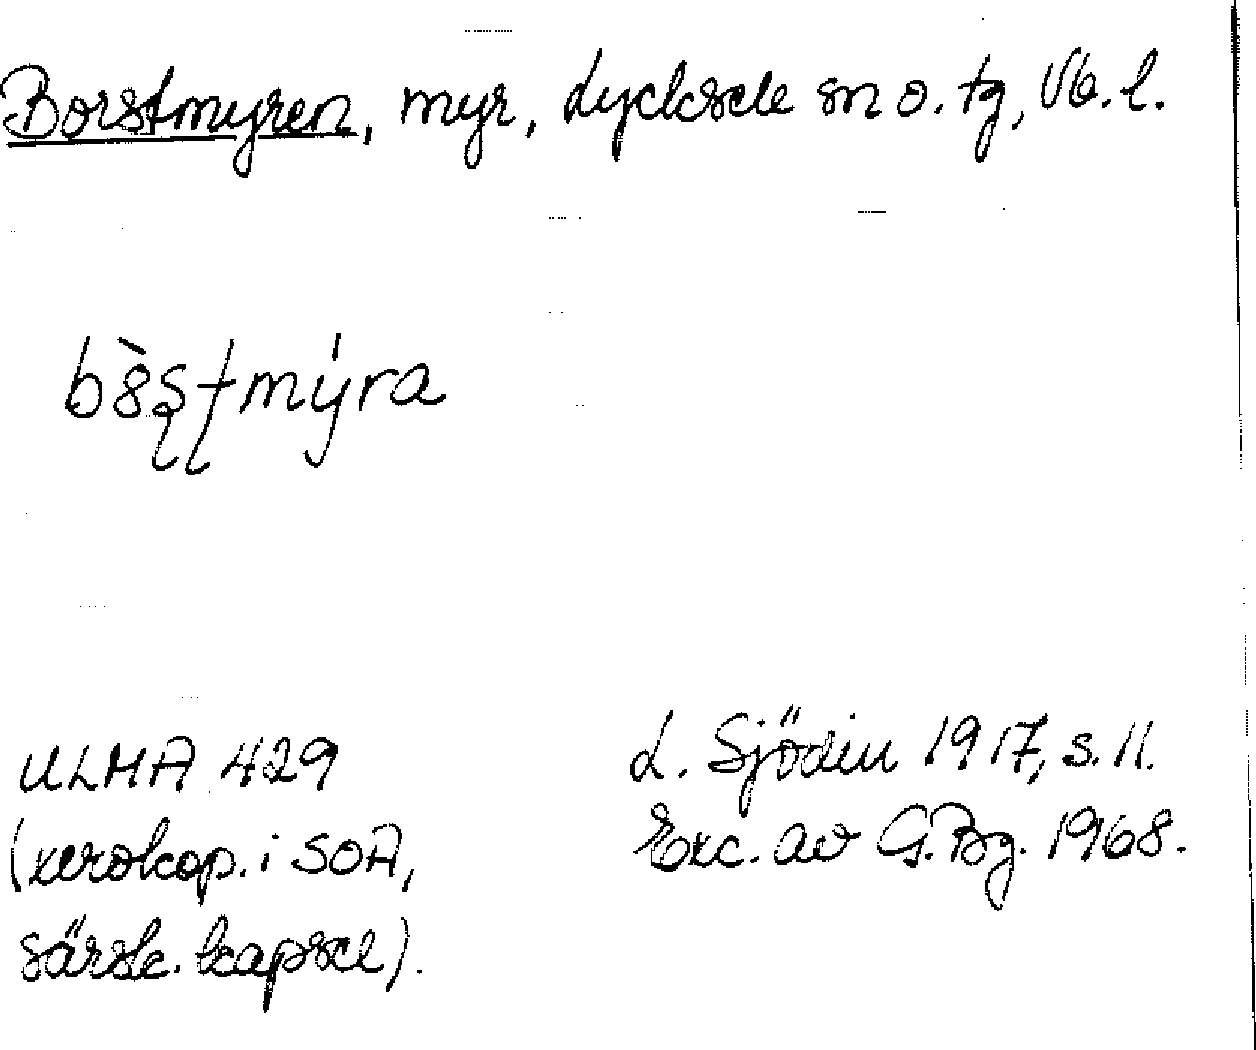 Borstmyren, myr, Lycksele sn o. tg, Vb. l.
bὸ̀ʂʈmýra
ULMA 429
(xerokop. i SOA,
särsk. kapsel).
L. Sjödin 1917, s. 11.
Exc. av G. Bg. 1968.